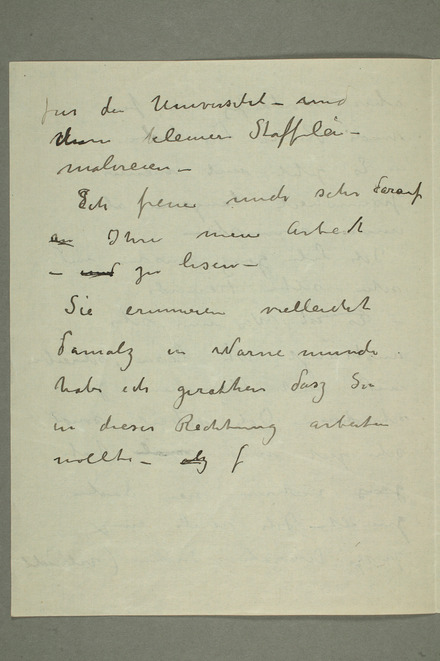 für die Universitet – und
kleinen Staffelei –
malereien –
Ich freue mich sehr darauf
Ihre neue Arbeit
– und zu lesen –
Sie erinneren vielleicht
damalz in Warnemünde
habe ich gerathen dasz Sie
in dieser Rechtung arbeiten
sollte –